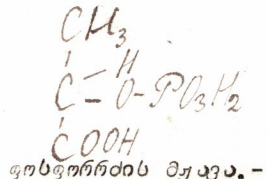 CH3
H
C - O - PO3H2
COOH
ფოსფორრძის მჟავა.-